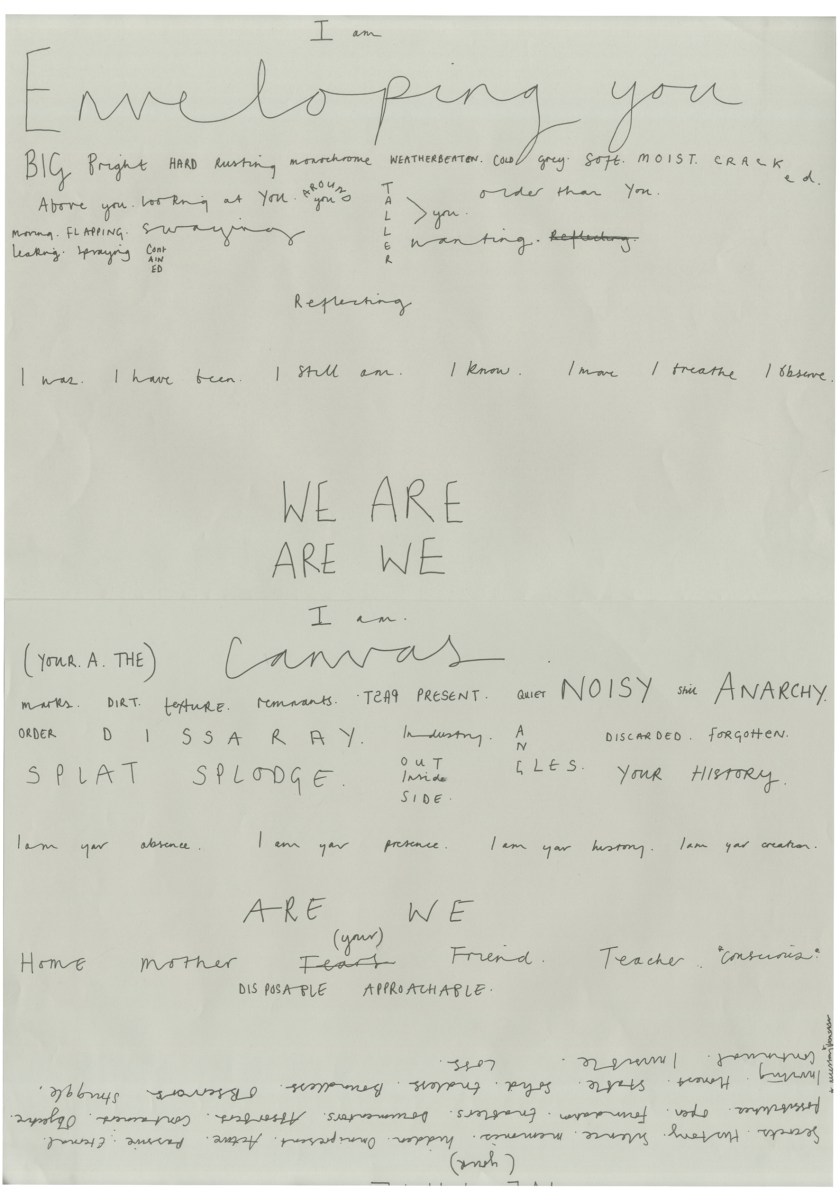 I am
Enveloping you
BIG Bright HARD Rusting monochrome WEATHERBEATEN. COLD grey. Soft. MOIST. CRACKed.
Above you. Looking at You. AROUND you TALLER > you. older than You.
moving. FLAPPING. Swaying
leaking. Spraying CONTAINED wanting. Reflecting.
Reflecting
I was. I have been. I still am. I know. I move I breathe I observe.
WE ARE
ARE WE
I am.
(YOUR. A. THE) Canvas
marks. DIRT. texture. remnants. TSAP PRESENT. QUIET NOISY still ANARCHY.
ORDER DISSARAY. Industry. ANGLES. DISCARDED. FORGOTTEN.
SPLAT SPLODGE. OUT Inside SIDE. YOUR HISTORY.
I am your absence. I am your presence. I am your history. I am your creation.
ARE WE
(your)
HOME mother Tears Friend. Teacher. "Conscious".
DISPOSABLE APPROACHABLE.
(your)
Secrets. History. Silence. memories. hidden. Omnipresent. Active. Passive. Eternal.
possibilities. open. Foundation. Enablers. Documentors. Absorbers. Contained. Objective.
Inviting. Honest. Stable. Solid. Endless. Boundless. Observers. Struggle.
Continual. Invisible. Loss.